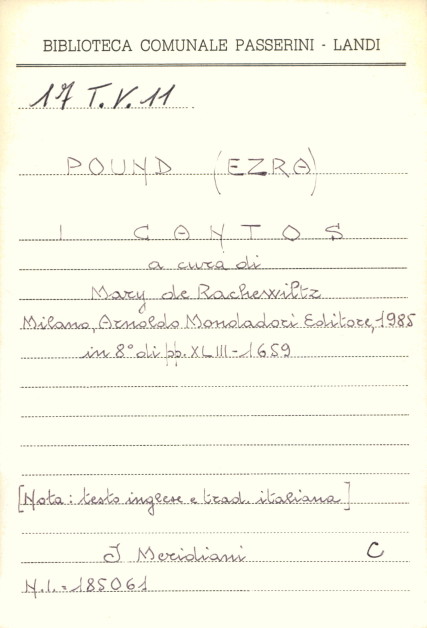 BIBLIOTECA COMUNALE PASSERINI - LANDI
17 T.V.11
POUND (EZRA)
I CANTOS
a cura di
Mary de Rachewiltz
Milano, Arnoldo Mondadori Editore, 1985
in 8° di pp. XLIII-1659
[Nota: testo inglese e trad. italiana]
I Meridiani C
N.I. = 185061